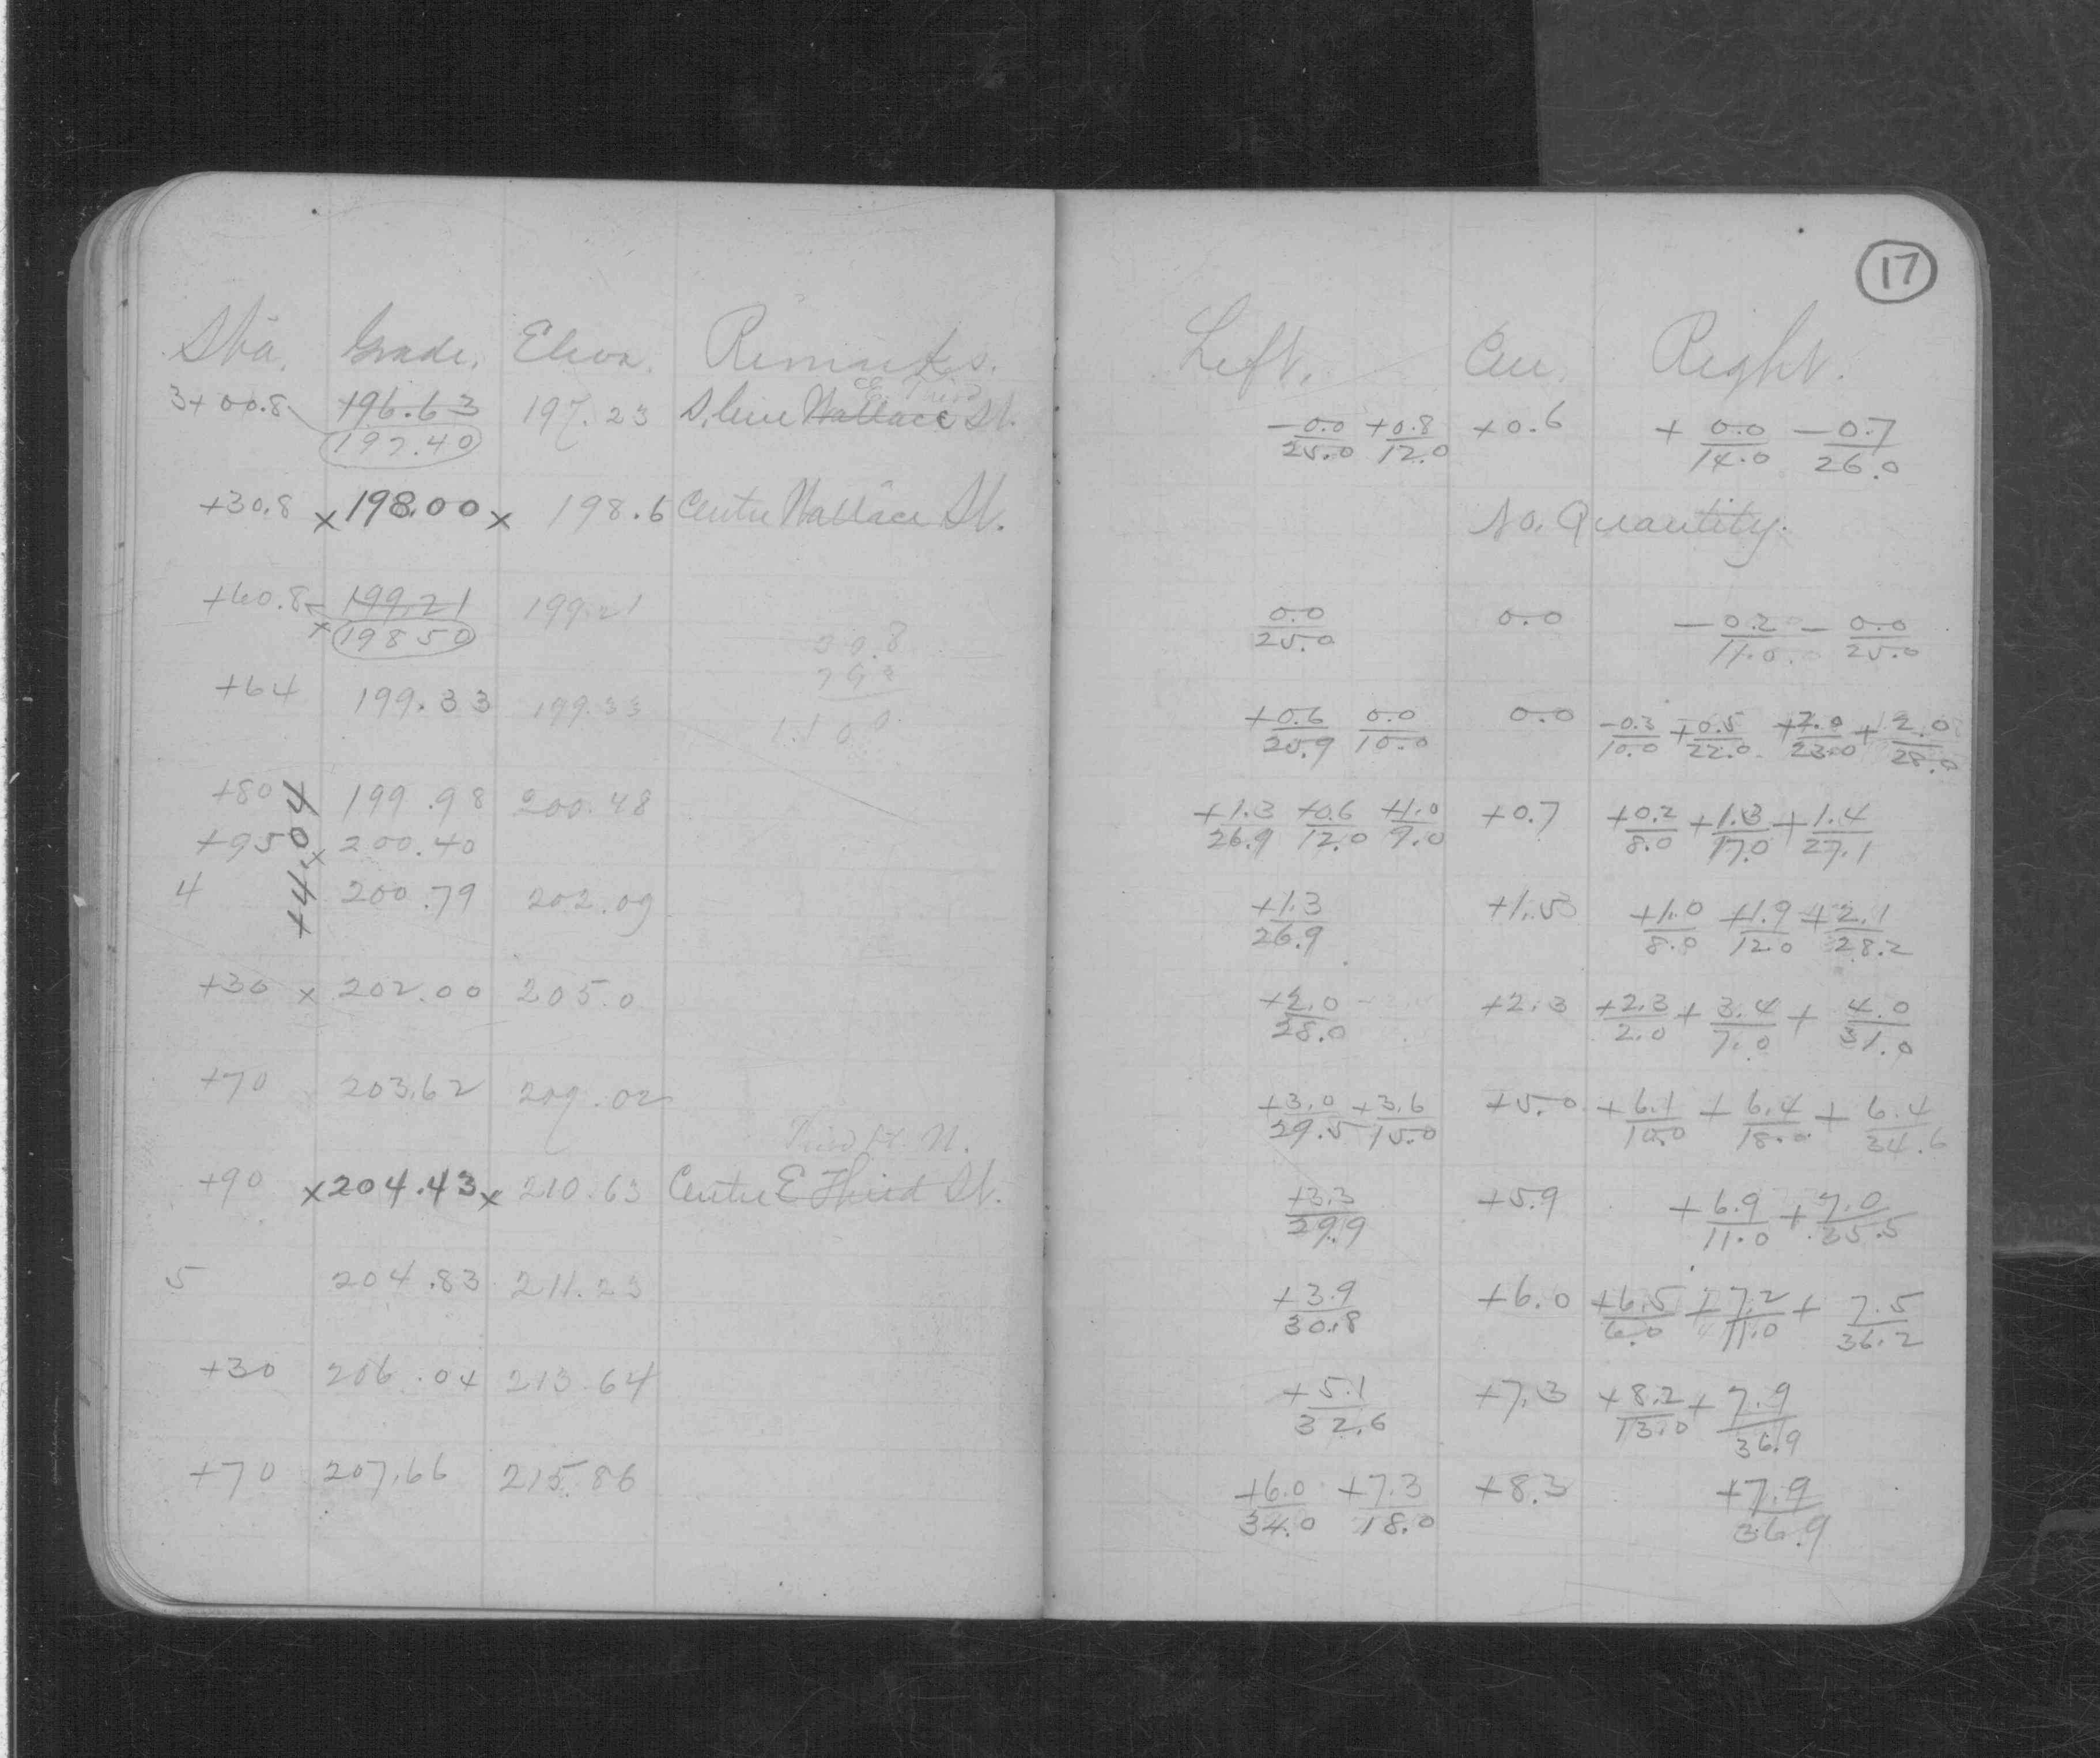 17
Sta. Grade. Eleva. Remarks. Left. Cen. Right.
3+00.8 196.63 197.23 S. line Wallace St. -0.0/25.0 +0.8/12.0 +0.6 + 0.0/14.0 -0.7/26.0
E. Third
197.40
+30.8 x 198.00 x 198.6 Centre Wallace St. No. Quantity.
+60.8 199.21 199.21 0.0/25.0 0.0 -0.2/11.0 - 0.0/25.0
x 198.50
+64 199.33 199.33 +0.6/25.9 0.0/10.0 0.0 -0.3/10.0 +0.5/22.0 +2.0/23.0 +2.0/28.0
1.100
+80 199.98 200.48 +1.3/26.9 +0.6/12.0 +1.0/9.0 +0.7 +0.2/8.0 +1.3/17.0 +1.4/27.1
+95 x 200.40
+4.04
4 200.79 202.09 +1.3/26.9 +1.53 +1.0/8.0 +1.9/12.0 +2.1/28.2
+30 x 202.00 205.0 +2.0/28.0 +2.3 +2.3/2.0 + 3.4/7.0 + 4.0/31.0
+70 203.62 209.02 +3.0/29.5 +3.6/15.0 +5.0 +6.1/10.0 + 6.4/18.0 + 6.4/34.6
Third St. N.
+90 x 204.43 x 210.63 Centre E Third St. +3.3/29.9 +5.9 +6.9/11.0 + 7.0/35.5
5 204.83 211.23 +3.9/30.8 +6.0 +6.5/6.0 +7.2/11.0 + 7.5/36.2
+30 206.04 213.64 +5.1/32.6 +7.3 +8.2/13.0 + 7.9/36.9
+70 207.66 215.86 +6.0/34.0 +7.3/18.0 +8.3 +7.9/36.9